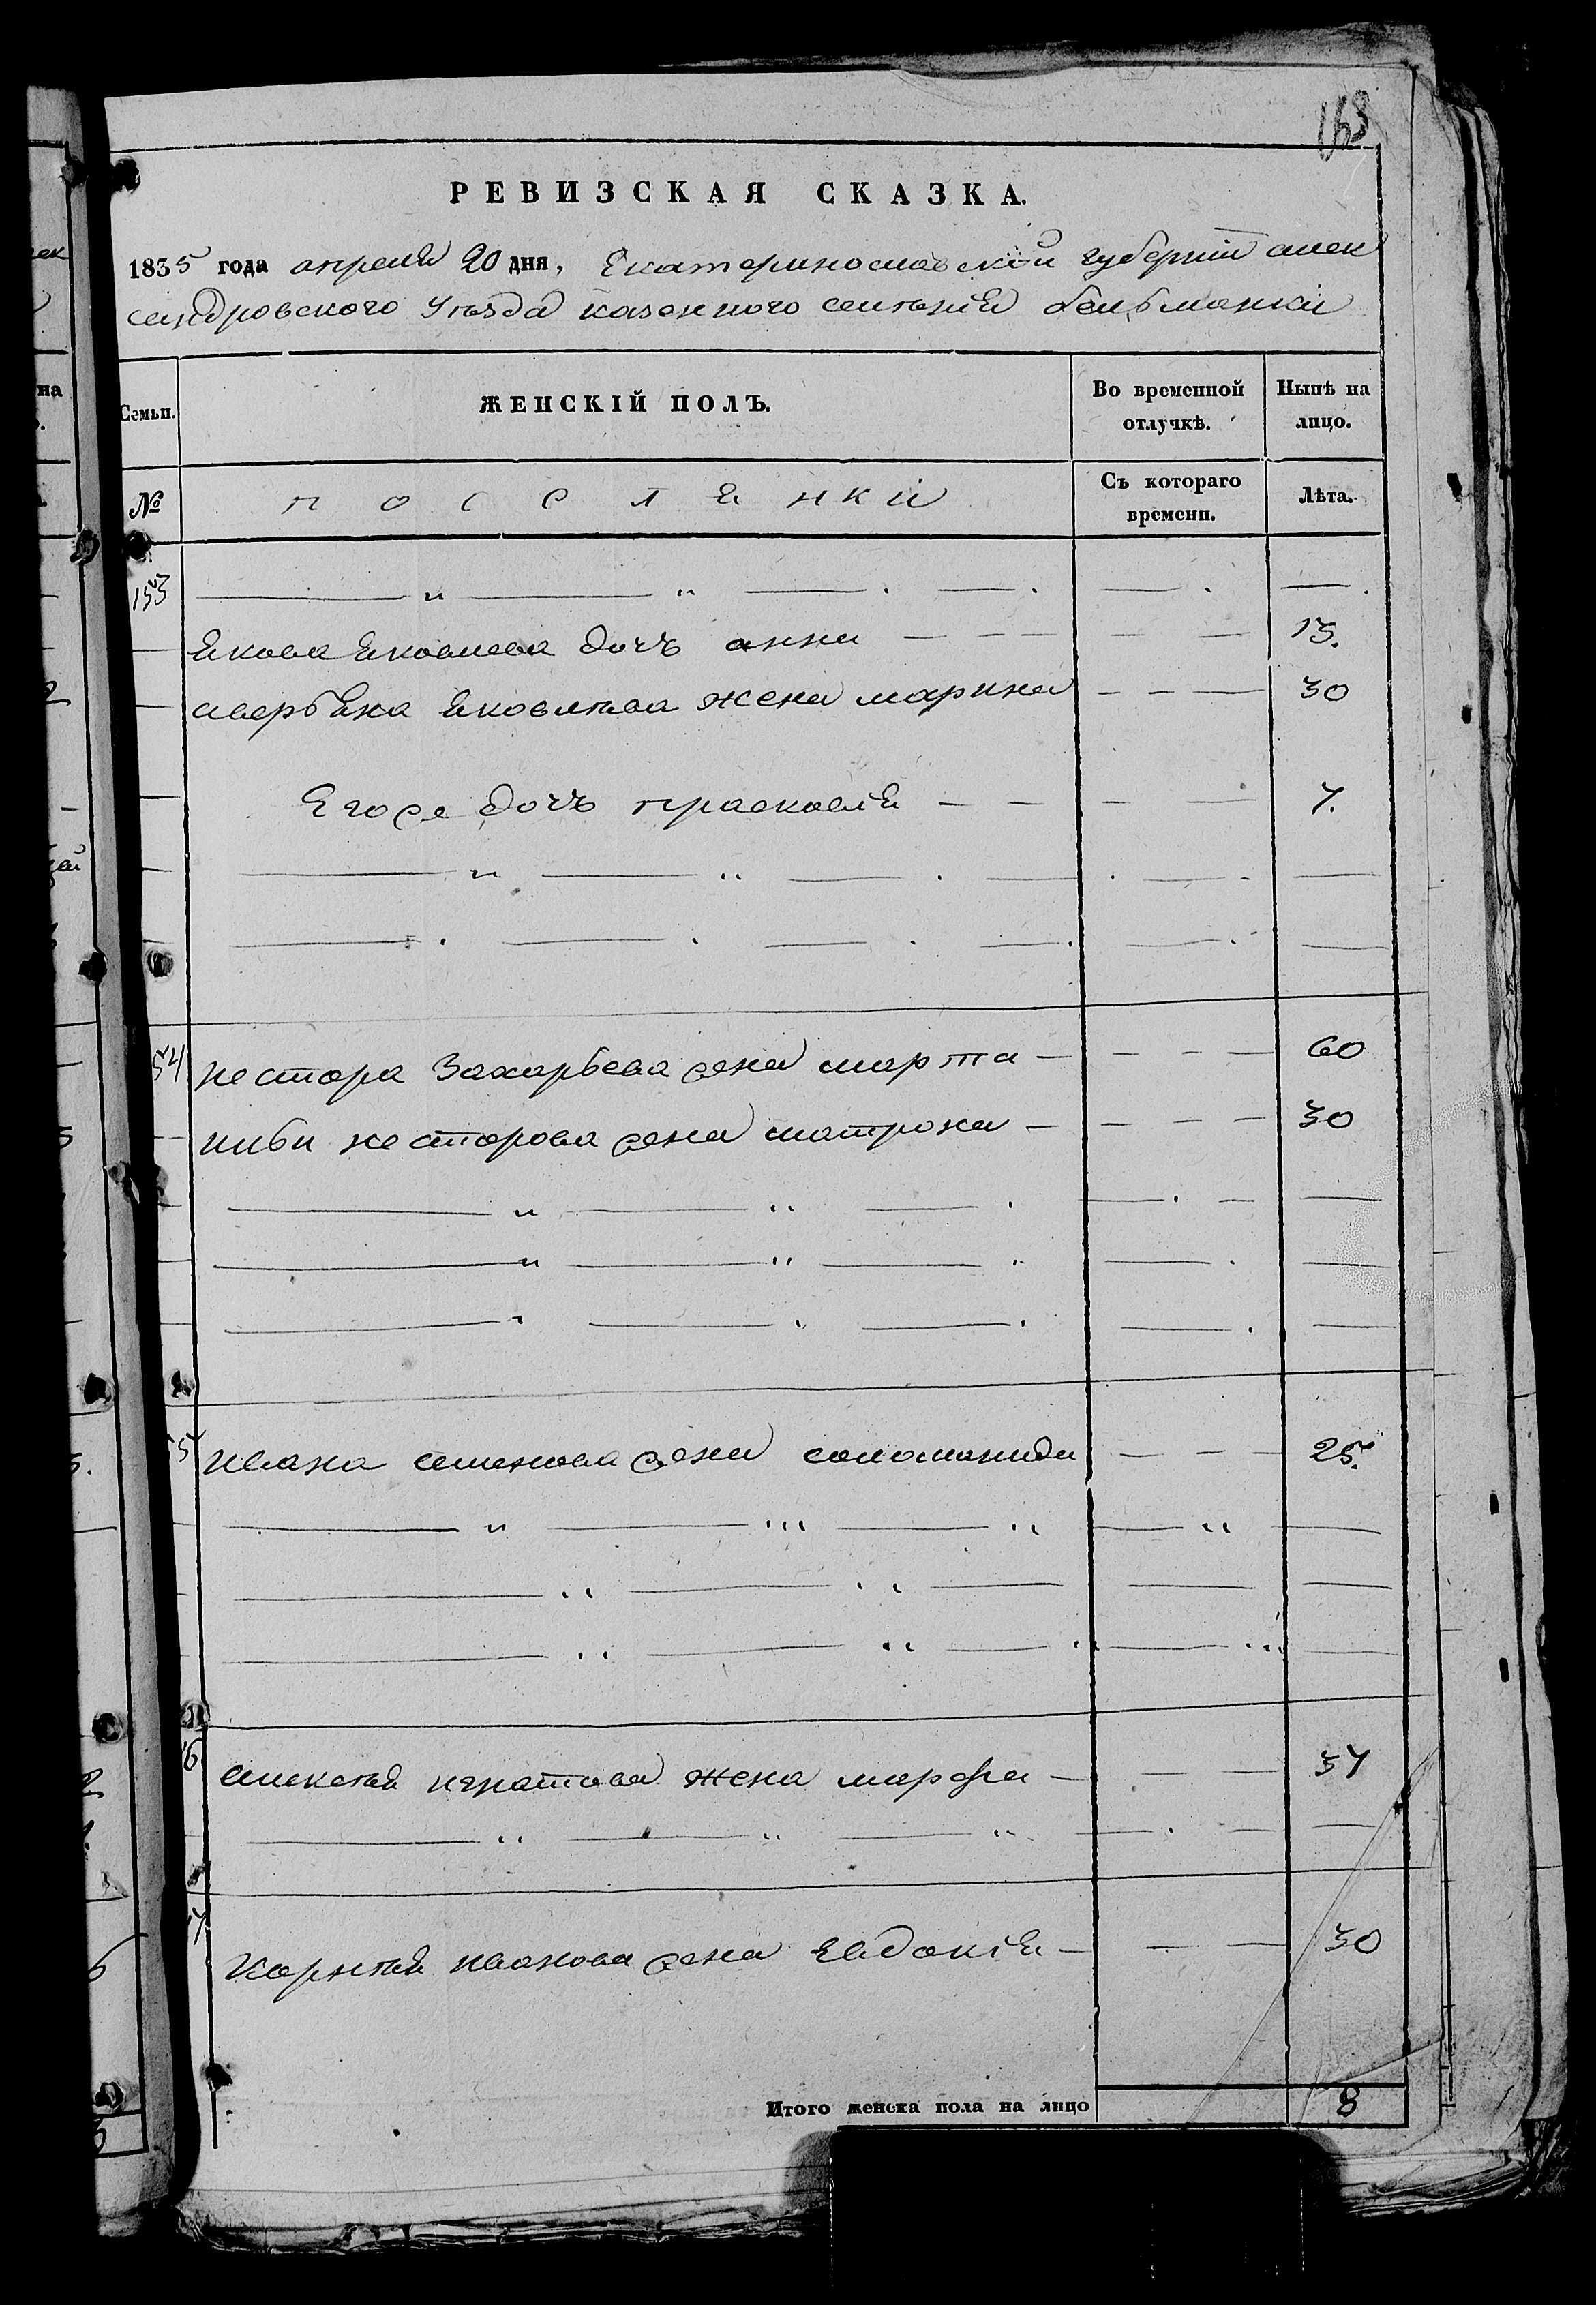 163
РЕВИЗСКАЯ СКАЗКА.
1835 года апреля 20 дня, Екатеринославской губернии алек
сандровского Уѣзда казенного селѣния белманки
Семьи. ЖЕНСКІЙ ПОЛЪ. Во временной отлучкѣ. Нынѣ на лицо.
№ поселянки Съ котораго времени. Лѣта.
153
Якова Яковлева дочъ анна 15.
аверьяна Яковлѣва жена марина 30
Его же дочъ прасковия 7.
54 нестора Захарьева жена марта 60
нестерова жена матрона 30
55 ивана семенова жена соломанида 25.
6 алексѣя игнатова жена марфа 37
7 корнѣя иванова жена Евдокія 30
Итого женска пола на лицо 8